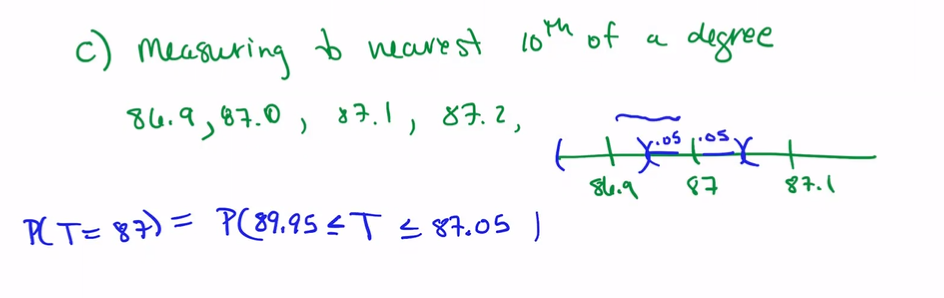 c) Measuring to nearest 10th of a degree
86.9, 87.0, 87.1, 87.2,
.05 .05
86.9 87 87.1
P(T= 87) = P(89.95 ≤ T ≤ 87.05 )